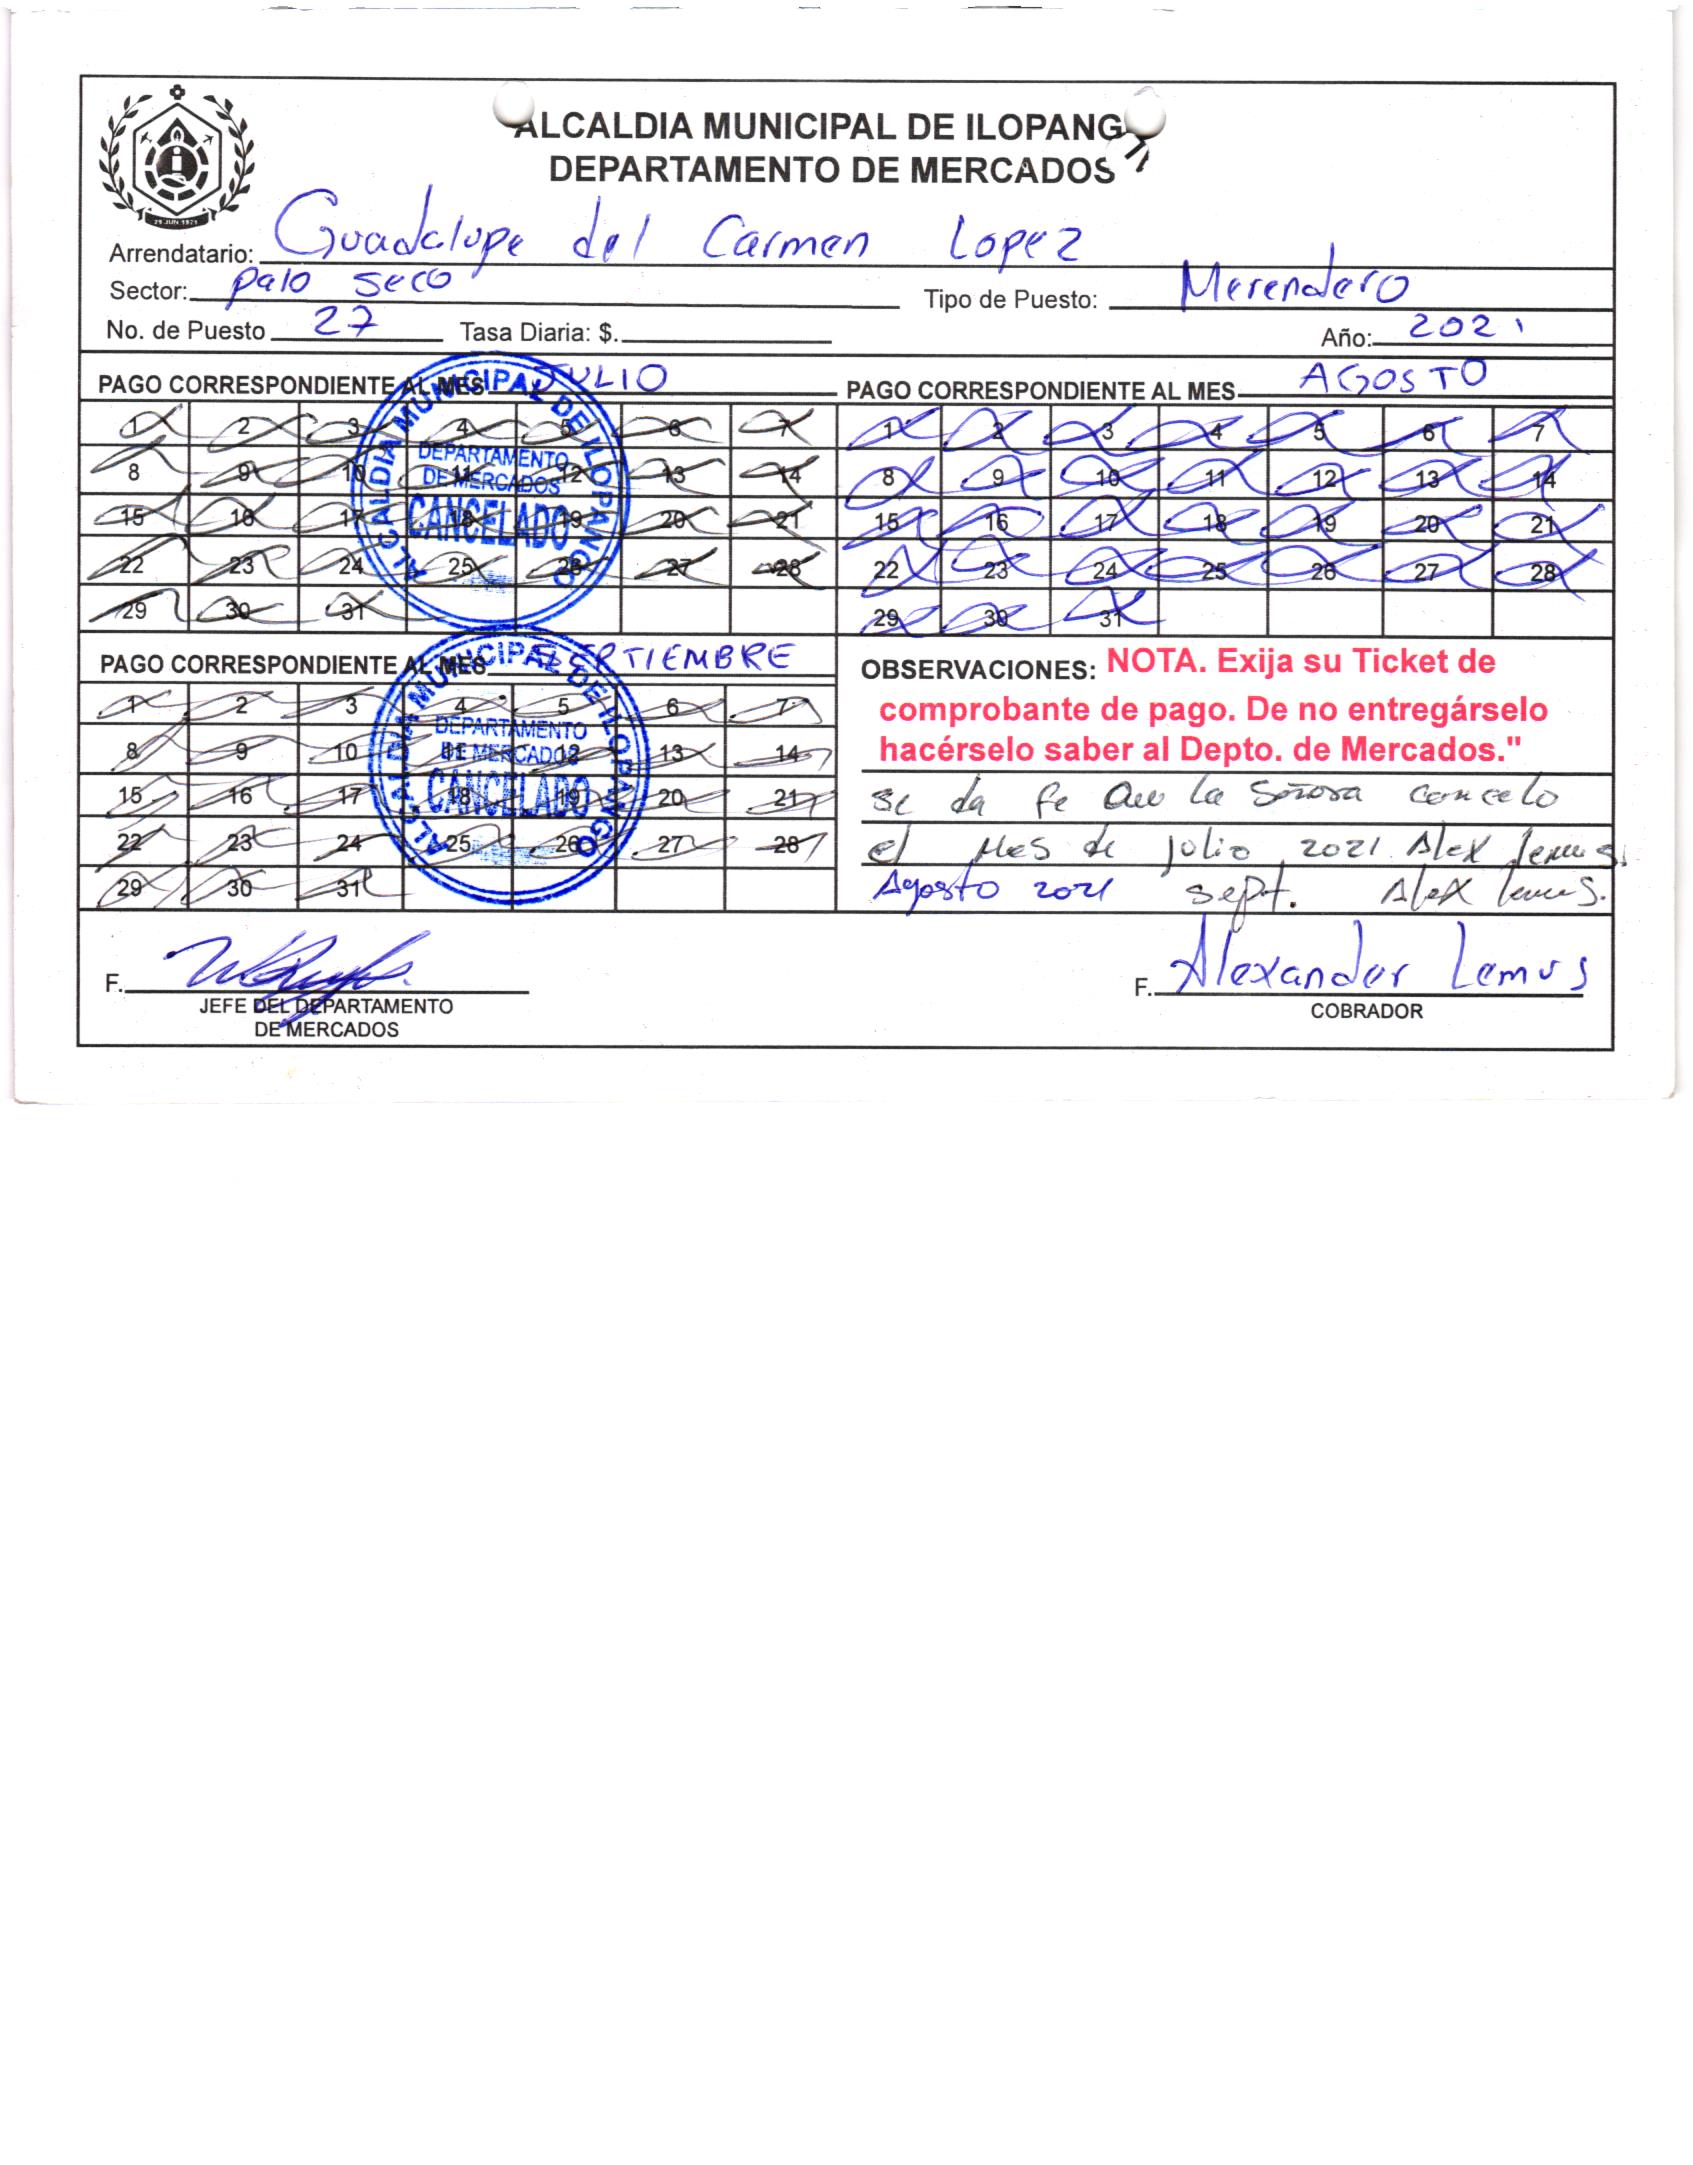 ALCALDIA MUNICIPAL DE ILOPANG
DEPARTAMENTO DE MERCADOS
29 JUN 1971
Arrendatario: Guadalupe del Carmen Lopez
Sector: palo seco Tipo de Puesto: Merendero
No. de Puesto 27 Tasa Diaria: $. Año: 2021
PAGO CORRESPONDIENTE AL MES JULIO
1 2 3 4 5 6 7
8 9 10 11 12 13 14
15 16 17 18 19 20 21
22 23 24 25 26 27 28
29 30 31
ALCALDIA MUNICIPAL DE ILOPANGO
DEPARTAMENTO
DE MERCADOS
CANCELADO
PAGO CORRESPONDIENTE AL MES AGOSTO
1 2 3 4 5 6 7
8 9 10 11 12 13 14
15 16 17 18 19 20 21
22 23 24 25 26 27 28
29 30 31
PAGO CORRESPONDIENTE AL MES SEPTIEMBRE
1 2 3 4 5 6 7
8 9 10 11 12 13 14
15 16 17 18 19 20 21
22 23 24 25 26 27 28
29 30 31
ALCALDIA MUNICIPAL DE ILOPANGO
DEPARTAMENTO
DE MERCADOS
CANCELADO
OBSERVACIONES: NOTA. Exija su Ticket de
comprobante de pago. De no entregárselo
hacérselo saber al Depto. de Mercados."
se da fe que la Señora cancelo
el Mes de julio 2021 Alex lemus.
Agosto 2021 sept. Alex lemus.
F.
JEFE DEL DEPARTAMENTO
DE MERCADOS
F. Alexander Lemus
COBRADOR